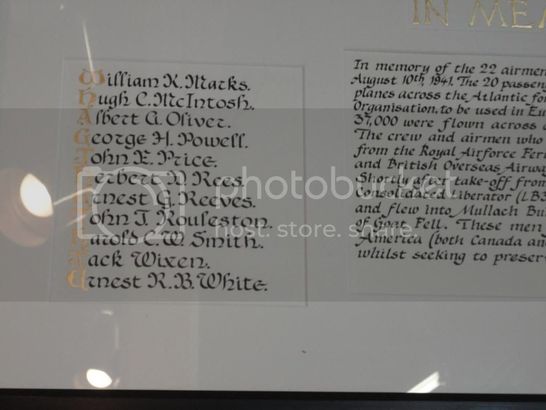 IN MEM
William K. Marks.
Hugh C. McIntosh.
Albert A. Oliver.
George H. Powell.
John E. Price.
Herbert W. Rees.
Ernest G. Reeves.
John J. Rouleston.
Harold C. W. Smith.
Jack Wixen.
Ernest R. B. White.
In memory of the 22 airmen
August 10th 1941. The 20 passen
planes across the Atlantic fo
Organisation, to be used in Eu
37,000 were flown across
The crew and airmen who
from the Royal Airforce Fer
and British Overseas Airway
Shortly after take-off from
Consolidated Liberator (LB3
and flew into Mullach Bu
of Goat Fell. These men
America (both Canada an
whilst seeking to preser
photobucket
host. store. share.